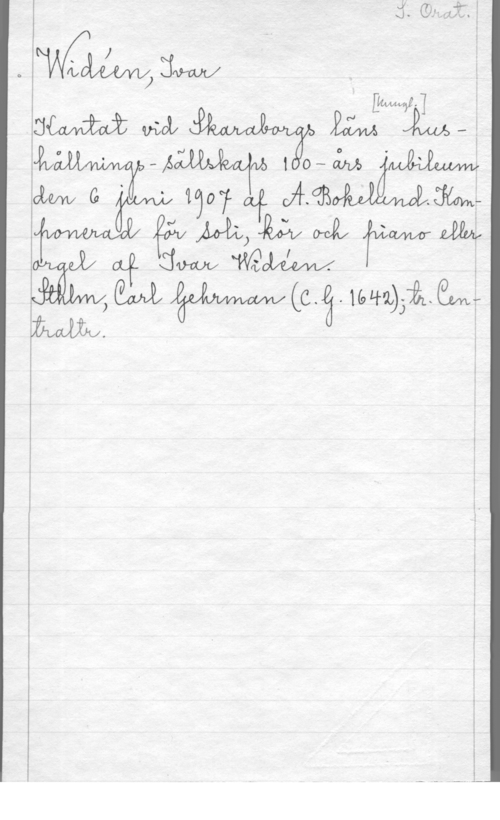 S. Orat.
Widéen, Ivar
[kungl.]
Kantat vid Skaraborgs läns hus-
hållnings-sällskaps 100-års jubileum
den 6 juni 1907 af A. Bokelund. Kom-
ponerad för soli, kör och piano eller
orgel af Ivar Widéen.
Sthlm, Carl Gehrman (C.G. 1642); tr. Cen-
traltr.